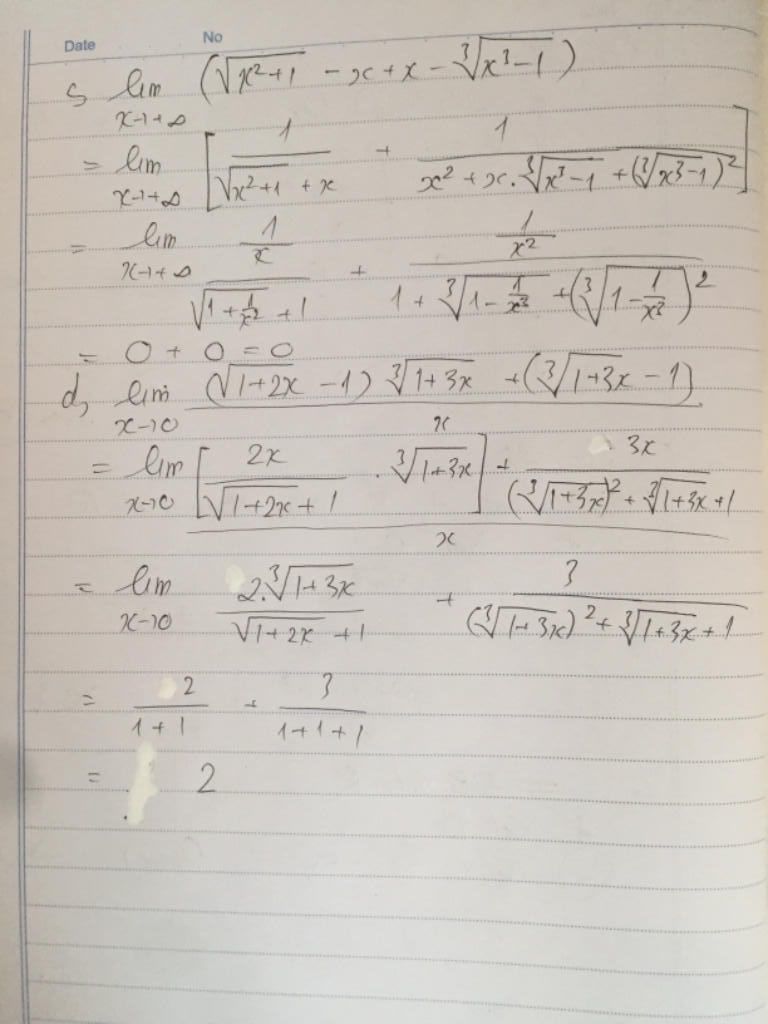 Date No
c, lim x→+∞ (√(x²+1) - x + x - ∛(x³-1))
= lim x→+∞ [1/(√(x²+1) + x) + 1/(x² + x.∛(x³-1) + (∛(x³-1))²)]
= lim x→+∞ (1/x)/(√(1+1/x²) + 1) + (1/x²)/(1 + ∛(1-1/x³) + (∛(1-1/x³))²)
= 0 + 0 = 0
d, lim x→0 ((√(1+2x) - 1) ∛(1+3x) + (∛(1+3x) - 1))/x
= lim x→0 ([2x/(√(1+2x) + 1) . ∛(1+3x)] + 3x/((∛(1+3x))² + ∛(1+3x) + 1))/x
= lim x→0 2.∛(1+3x)/(√(1+2x) + 1) + 3/((∛(1+3x))² + ∛(1+3x) + 1)
= 2/(1+1) + 3/(1+1+1)
= 2